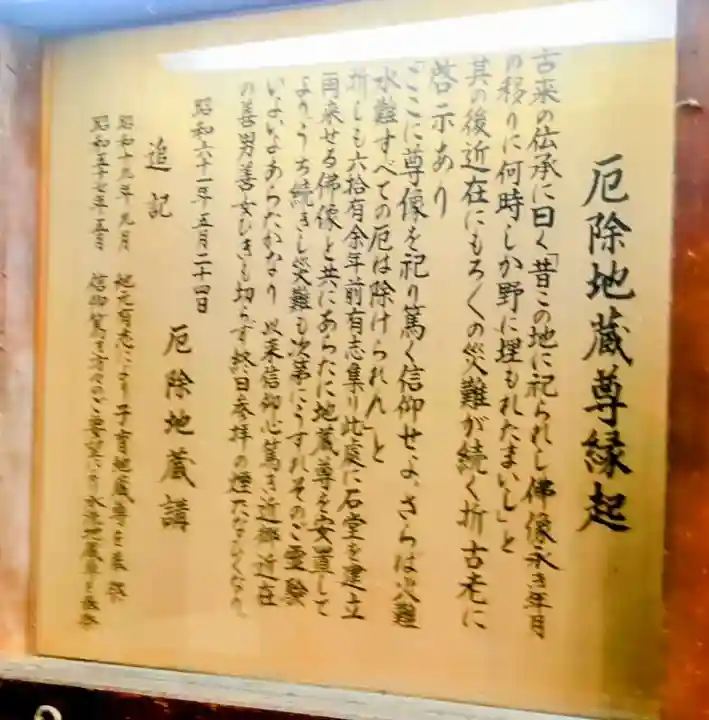 厄除地蔵尊縁起
古来の伝承に曰く「昔この地に祀られし佛像永き年月
の移りに何時しか野に埋もれたまいし」と
其の後近在にもろくの災難が続く折古老に
啓示あり
「ここに尊像を祀り篤く信仰せよ、さらば火難
水難すべての厄は除けられん」と
折しも六拾有余年前有志集り此處に石堂を建立
再来せる佛像と共にあらたに地蔵尊を安置して
より、うち続きし災難も次第にうすれそのご霊験
いよいよあらたかなり 以来信仰心篤き近郷近在
の善男善女ひきも切らず終日参拝の煙たなびくなり
昭和六十一年五月二十四日
厄除地蔵講
追記
昭和十九年九月 地元有志により子育地蔵尊を
昭和五十七年五月 信仰篤き方々のご要望により水子地蔵尊を